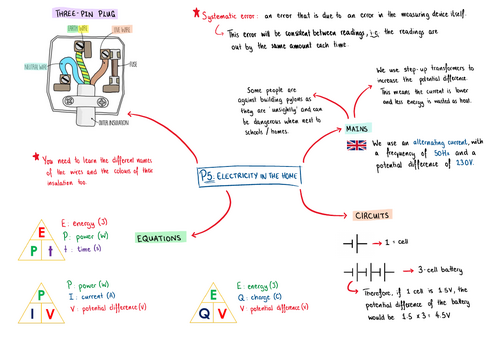 THREE-PIN PLUG
EARTH WIRE
LIVE WIRE
NEUTRAL WIRE
FUSE
OUTER INSULATION
★ You need to learn the different names
of the wires and the colours of their
insulation too.
★ Systematic error : an error that is due to an error in the measuring device itself.
This error will be consistent between readings, i.e. the readings are
out by the same amount each time.
Some people are
against building pylons as
they are 'unsightly' and can
be dangerous when next to
schools / homes.
We use step-up transformers to
increase the potential difference.
This means the current is lower
and less energy is wasted as heat.
MAINS
We use an alternating current, with
a frequency of 50Hz and a
potential difference of 230V.
P5: ELECTRICITY IN THE HOME
CIRCUITS
→ 1 = cell
→ 3-cell battery
Therefore, if 1 cell is 1.5V, the
potential difference of the battery
would be 1.5 x 3 = 4.5V
EQUATIONS
E
P t
E : energy (J)
P : power (W)
t : time (s)
P
I V
P : power (W)
I : current (A)
V : potential difference (V)
E
Q V
E : energy (J)
Q : charge (C)
V : potential difference (V)